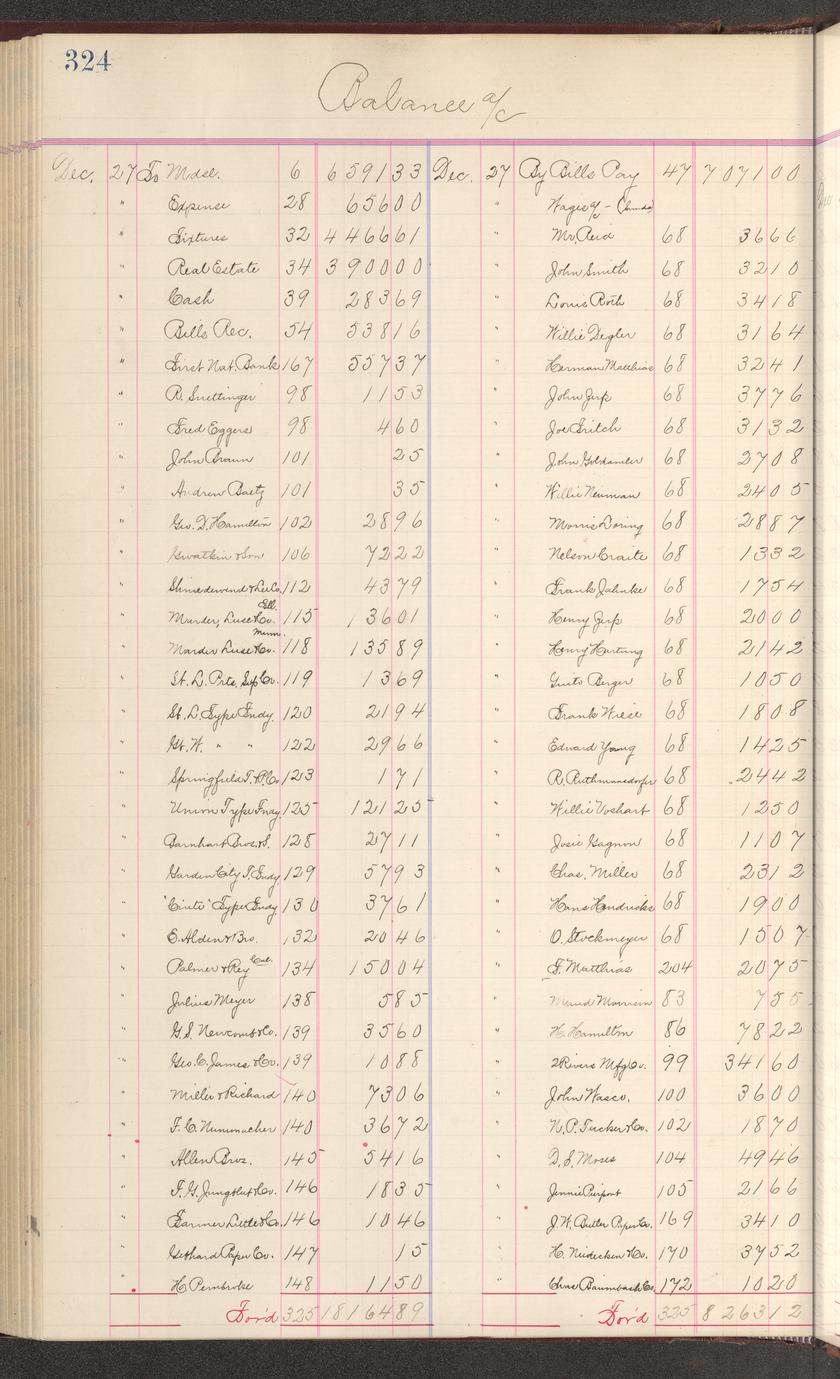 324
Balance a/c
Dec. 27 To Mdse. 6 6591 33 Dec. 27 By Bills Pay 47 7071 00
" Expense 28 656 00 " Wages a/c -
" Fixtures 32 4466 61 " Mr. Reid 68 36 66
" Real Estate 34 3900 00 " John Smith 68 32 10
" Cash 39 283 69 " Louis Roth 68 34 18
" Bills Rec. 54 538 16 " Willie Degler 68 31 64
" First Nat. Bank 167 557 37 " Herman Matthias 68 32 41
" R. Snettinger 98 11 53 " John Zerk 68 37 76
" Fred Eggers 98 4 60 " Joe Fritch 68 31 32
" John Braun 101 25 " John Goldamler 68 27 08
" Andrew Baetz 101 35 " Willie Neuman 68 24 05
" Geo. D. Hamilton 102 28 96 " Morris Loring 68 28 87
" Gwatkin & Son 106 72 22 " Nelson Craite 68 13 32
" & Lee Co. 112 43 79 " Frank Jahnke 68 17 54
" Marder, Luse & Co. Ill. 115 136 01 " Henry Zerk 68 20 00
" Marder Luse & Co. Minn. 118 135 89 " Henry Hartung 68 21 42
" St. L. Prts. Sup Co. 119 13 69 " Guito Berger 68 10 50
" St. L. Type Fndy. 120 21 94 " Frank Wiese 68 18 08
" Gt. W. " " 122 29 66 " Edward Young 68 14 25
" Springfield T. & P. Co. 123 1 71 " R. Ruthmansdorfer 68 24 42
" Union Type Fndy. 125 121 25 " Willie Voshart 68 12 50
" Barnhart Bros. & S. 128 27 11 " Josie Gagnon 68 11 07
" Garden City T. Fndy. 129 57 93 " Chas. Miller 68 23 12
" "Cinti" Type Fndy 130 37 61 " Hans Hendricks 68 19 00
" E. Alden & Bro. 132 20 46 " O. Stockmeyer 68 15 07
" Palmer & Rey Cal. 134 150 04 " F. Matthias 204 20 75
" Julius Meyer 138 5 85 " Maud Morrison 83 7 55
" G. S. Newcomb & Co. 139 35 60 " H. Hamilton 86 78 22
" Geo. C. James & Co. 139 10 88 " 2 Rivers Mfg Co. 99 341 60
" Miller & Richard 140 73 06 " John Wasco. 100 36 00
" F. C. Nunnmacher 140 36 72 " N. P. Tucker & Co. 102 18 70
" Allen Bros. 145 54 16 " D. S. Moses 104 49 46
" F. G. Jungblut & Co. 146 18 35 " Jennie Pierpont 105 21 66
" Farmer Little & Co. 146 10 46 " J. W. Butler Paper Co. 169 34 10
" Gethard Paper Co. 147 15 " H. Niedecken & Co. 170 37 52
" H. Pembroke 148 11 50 " Chas Baumbach Co. 172 10 20
For'd 325 18164 89 For'd 325 8263 12